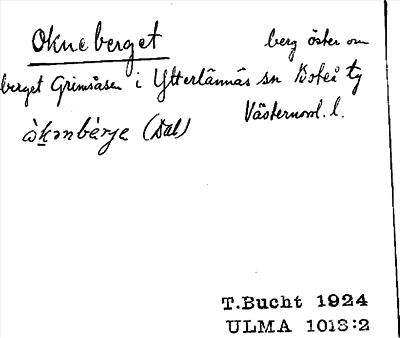 Okneberget
berg öster om
berget Grimsåsen i Ytterlännäs sn
Västernorrl. l.
(Dal)
T.Bucht 1924
ULMA 1013:2